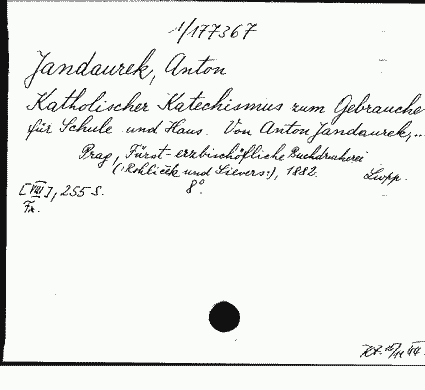 1/177367
Jandaurek, Anton
Katholischer Katechismus zum Gebrauche
für Schule und Haus. Von Anton Jandaurek,...
Prag, Fürst-erzbischöfliche Buchdruckerei
(:Rohliček und Sievers:), 1882.
[VIII], 255 S. 8°